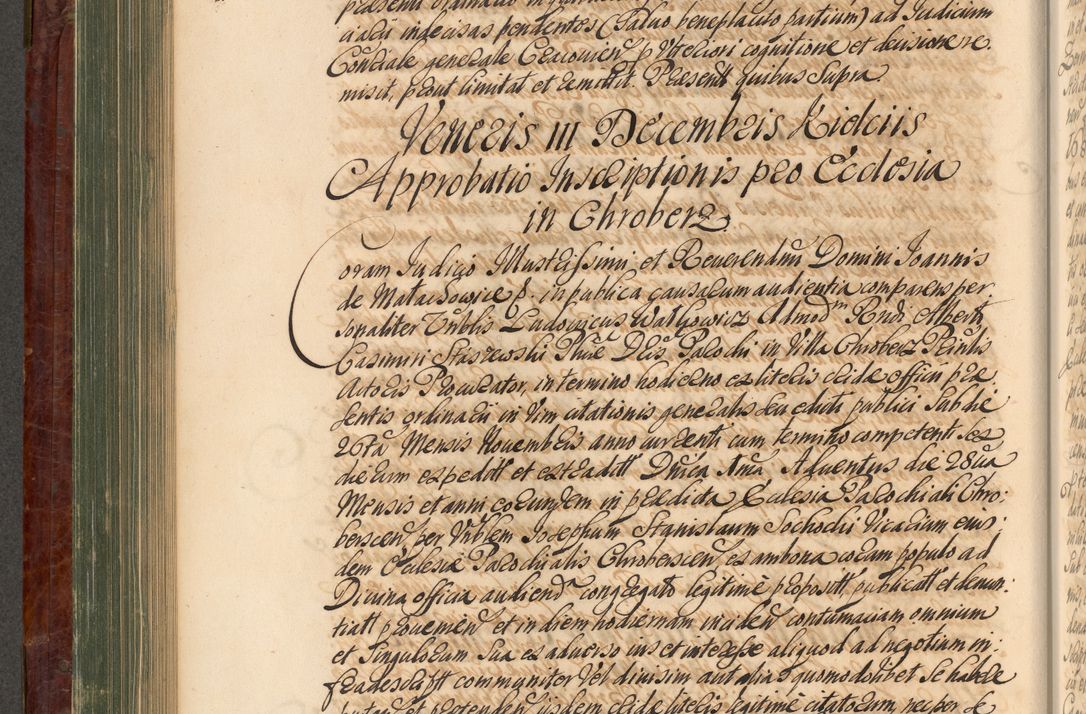 praesenti
a actu indecisas pendentes (Salvo beneplacito partium) ad Iudicium
Consolare generale Cracovien p Ulteriori cognitione et decisione re
misit, prout limitat et remittit. Praesentt quibus Supra
Veneris III Decembris Kielciis
Approbatio Inscriptionis pro Ecclesia
in Chroberz
Coram Iudicio Illustrissimi et Reverendmi Domini Ioannis
de Małachowice p. in publica causarum audientia comparens per
sonaliter Ludovicus Admodm Rndi Alberti
Casimiri Staszewski Phiae Dris Parochi in Villa Chroberz Principalis
Actoris Procurator, in termino hodierno ex literis cridae officii prae
sentis ordinarii in Vim citationis generalis seu edicti publici Sub die
26ta Mensis Novembris anno currenti cum termino competenti sex
dierum expeditt et extraditt Dnica Ima Adventus die 28va
Mensis et anni eorundem in praedicta Ecclesia Parochiali Chro:
berscen per Vnblem Iosephum Stanislaum Sochocki Vicarium eius:
dem Ecclesiae Parochialis Chroberscen ex ambona coram populo ad
Divina officia audiend congregato legitime propositt, publicatt et denun:
tiatt provenien et in diem hodiernam inciden contumaciam omnium
et Singulorum Sua ex adverso ius et interesse aliquod ad negotium in:
fradescriptt communiter Vel divisim aut alias quomodolibet se habere
putan et praetenden iisdem cridae literis legitime citatorum nec per se